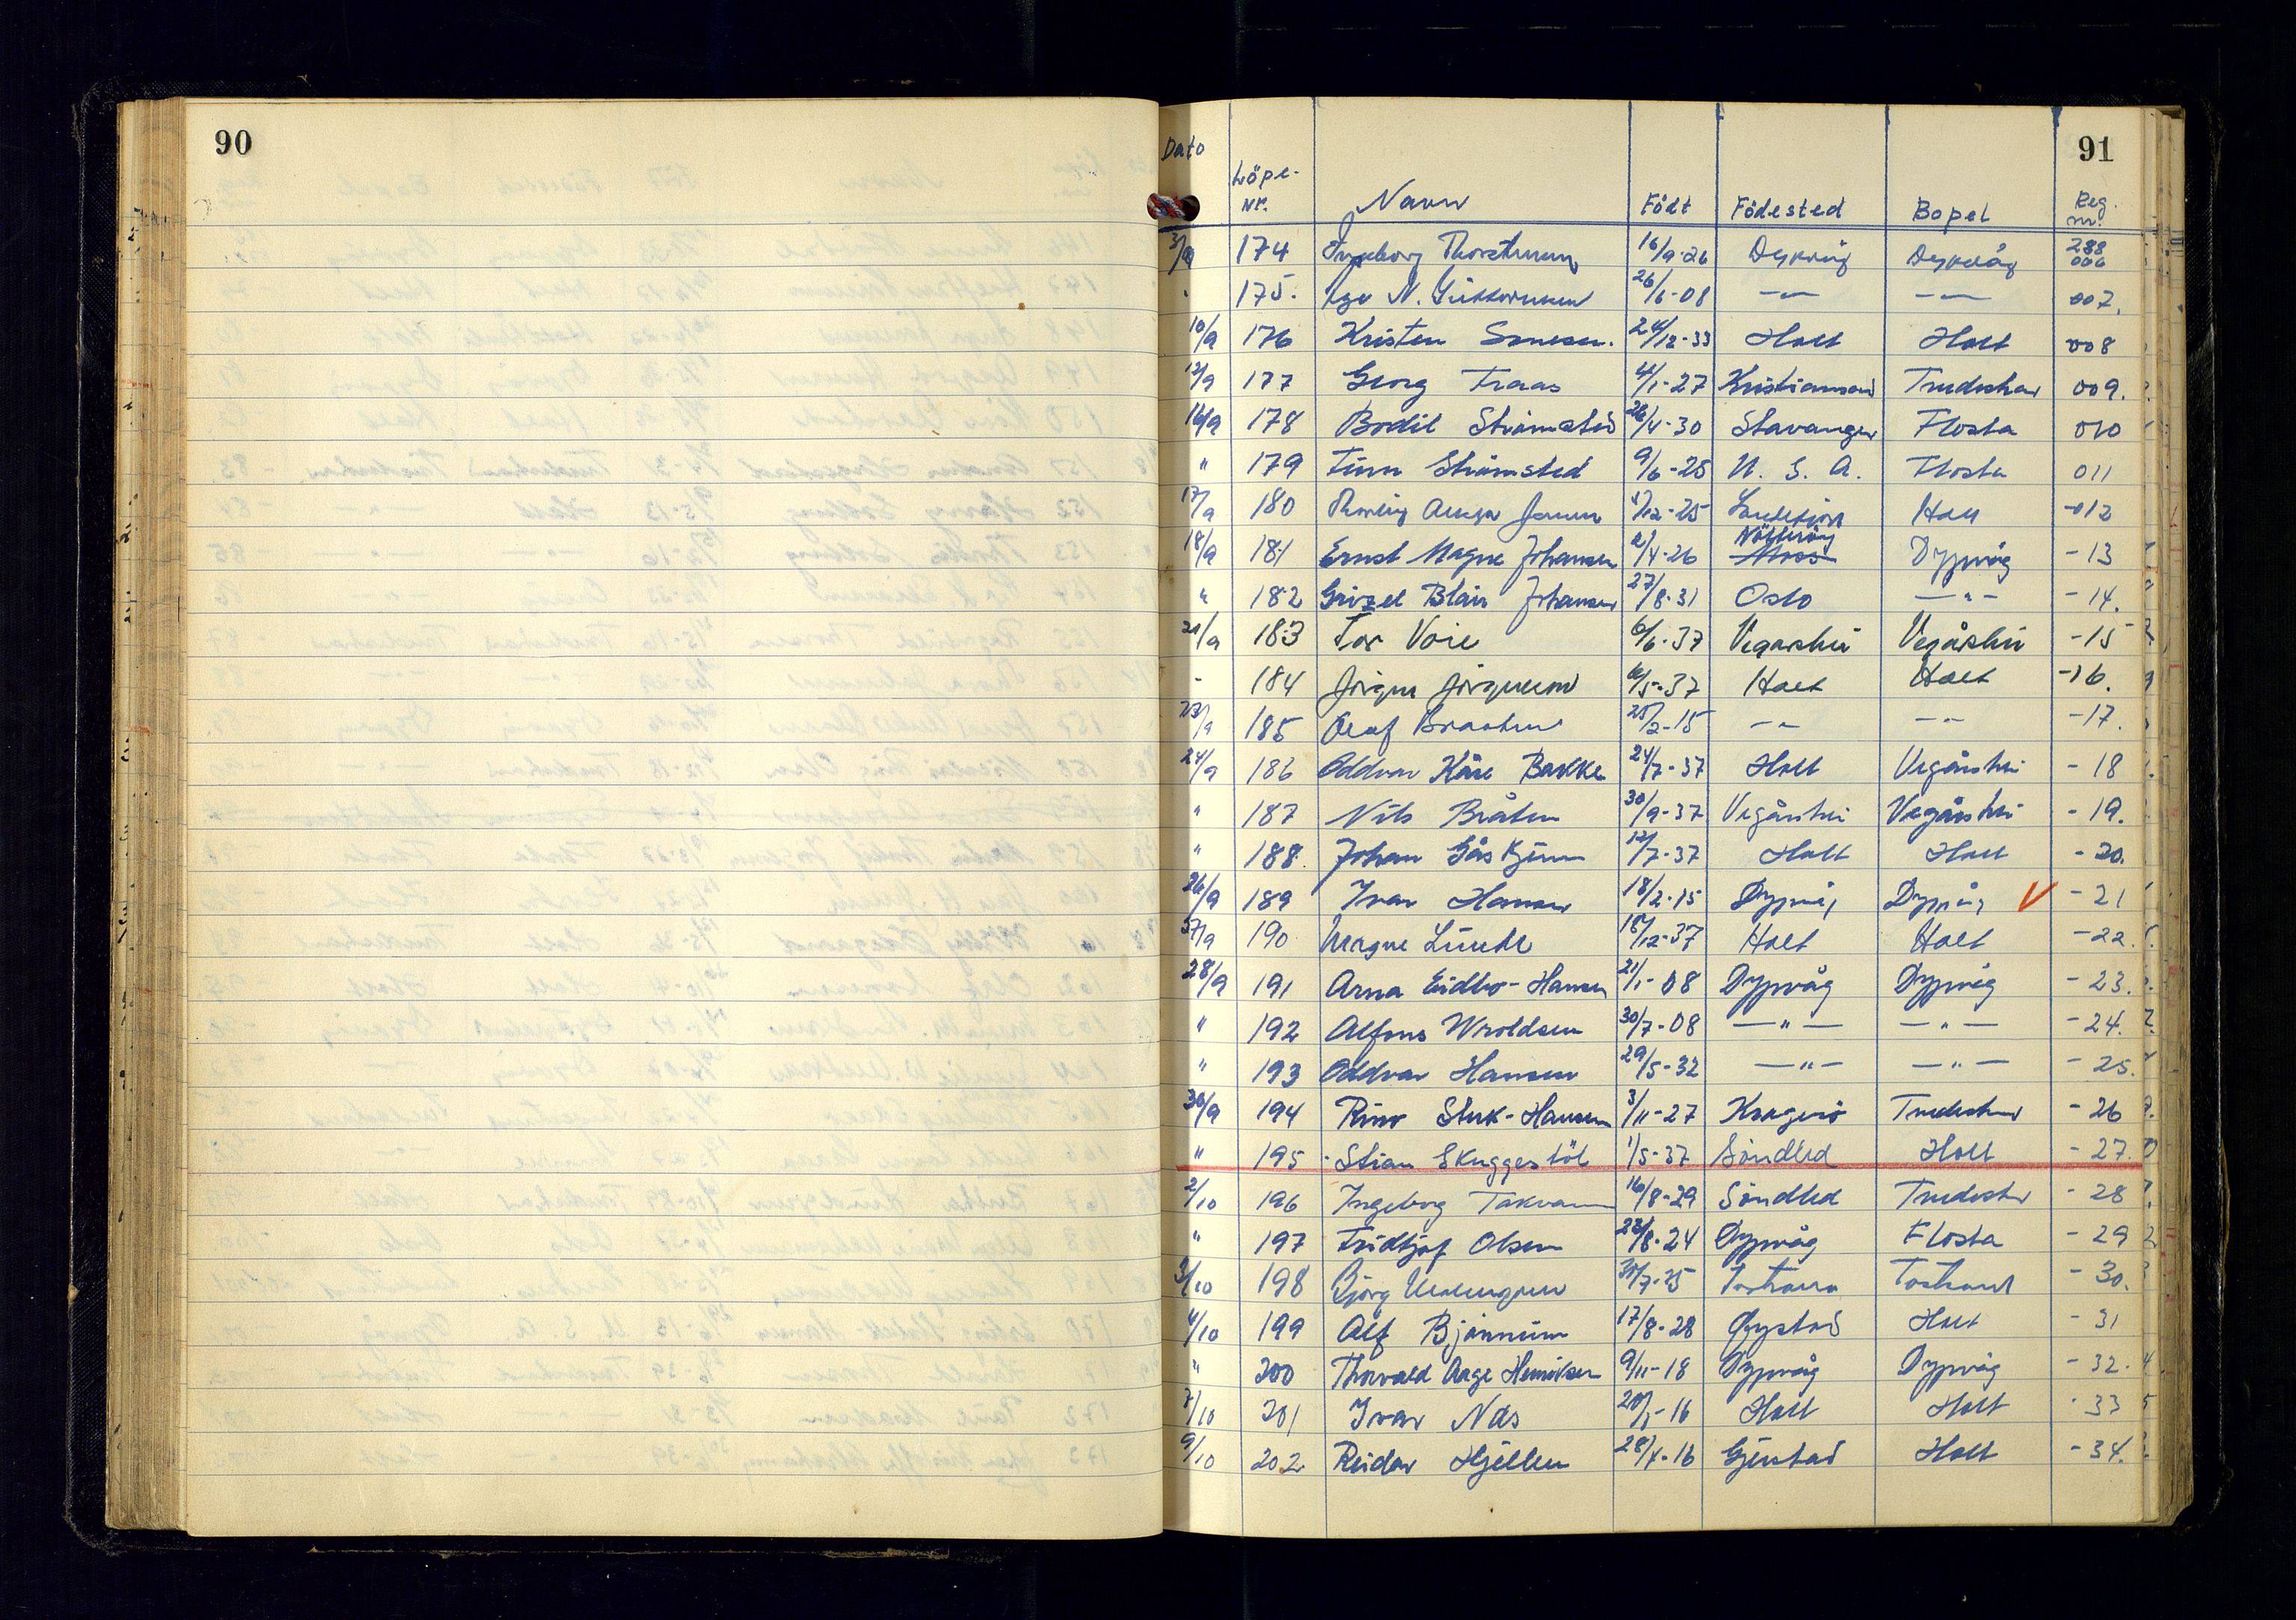 90
91
Dato Löpe-Nr. Navn Född Födested Bopel Reg. nr.
3/9 174 Ingeborg 16/9-26 Dypvåg Dypvåg 288 006
175. N. 26/6-08 — " — — " — 007.
10/9 176 Kristen 24/12-33 Holt Holt 008
12/9 177 Georg Traas 4/1-27 Kristiansand Tvedestrand 009.
16/9 178 Bodil Strömsted 26/4-30 Stavanger Flosta 010
" 179 Finn Strömsted 9/6-25 U. S. A. Flosta 011
17/9 180 Jensen /12-25 Holt -012
18/9 181 Ernst Magne Johansen 2/4-26 Nötteröy Moss Dypvåg -13
" 182 Grizel Blair Johansen 27/8-31 Oslo — " — -14.
21/9 183 Tor Voie 6/6-37 Vegårshei Vegårshei -15
- 184 Jörgen Jörgensen /5-37 Holt Holt -16.
23/9 185 Olaf Braaten 25/2-15 — " — " -17.
24/9 186 Oddvar Kåre Bakke 24/7-37 Holt Vegårshei -18
" 187 Nils Bråten 30/9-37 Vegårshei Vegårshei -19.
" 188. Johan Gåskjenn 12/7-37 Holt Holt -20.
26/9 189 Ivar Hansen 18/2-15 Dypvåg Dypvåg V -21
27/9 190 Magne Lunde 18/12-37 Holt Holt -22.
28/9 191 Arna Eidbo-Hansen 21/1-08 Dypvåg Dypvåg -23.
" 192 Alfons Wroldsen 30/7-08 — " — — " — -24.
" 193 Oddvar Hansen 29/5-32 — " — — " — -25.
30/9 194 -Hansen 3/11-27 Kragerö Tvedestrand -26
" 195 Stian Skuggestöl 1/5-37 Söndeled Holt -27.
2/10 196 Ingeborg Takvam 16/8-29 Söndeled Tvedestr -28
" 197 Fridtjof Olsen 23/8-24 Dypvåg Flosta -29
3/10 198 Bjørg 30/7-25 -30.
4/10 199 Alf 17/8-28 Øyestad Holt -31
" 200 Thorvald Aage Henriksen 9/11-18 Dypvåg Dypvåg -32.
7/10 201 Ivar Næs 20/1-16 Holt Holt -33
9/10 202 Reidar Hjellen 28/4-16 Gjerstad Holt -34.